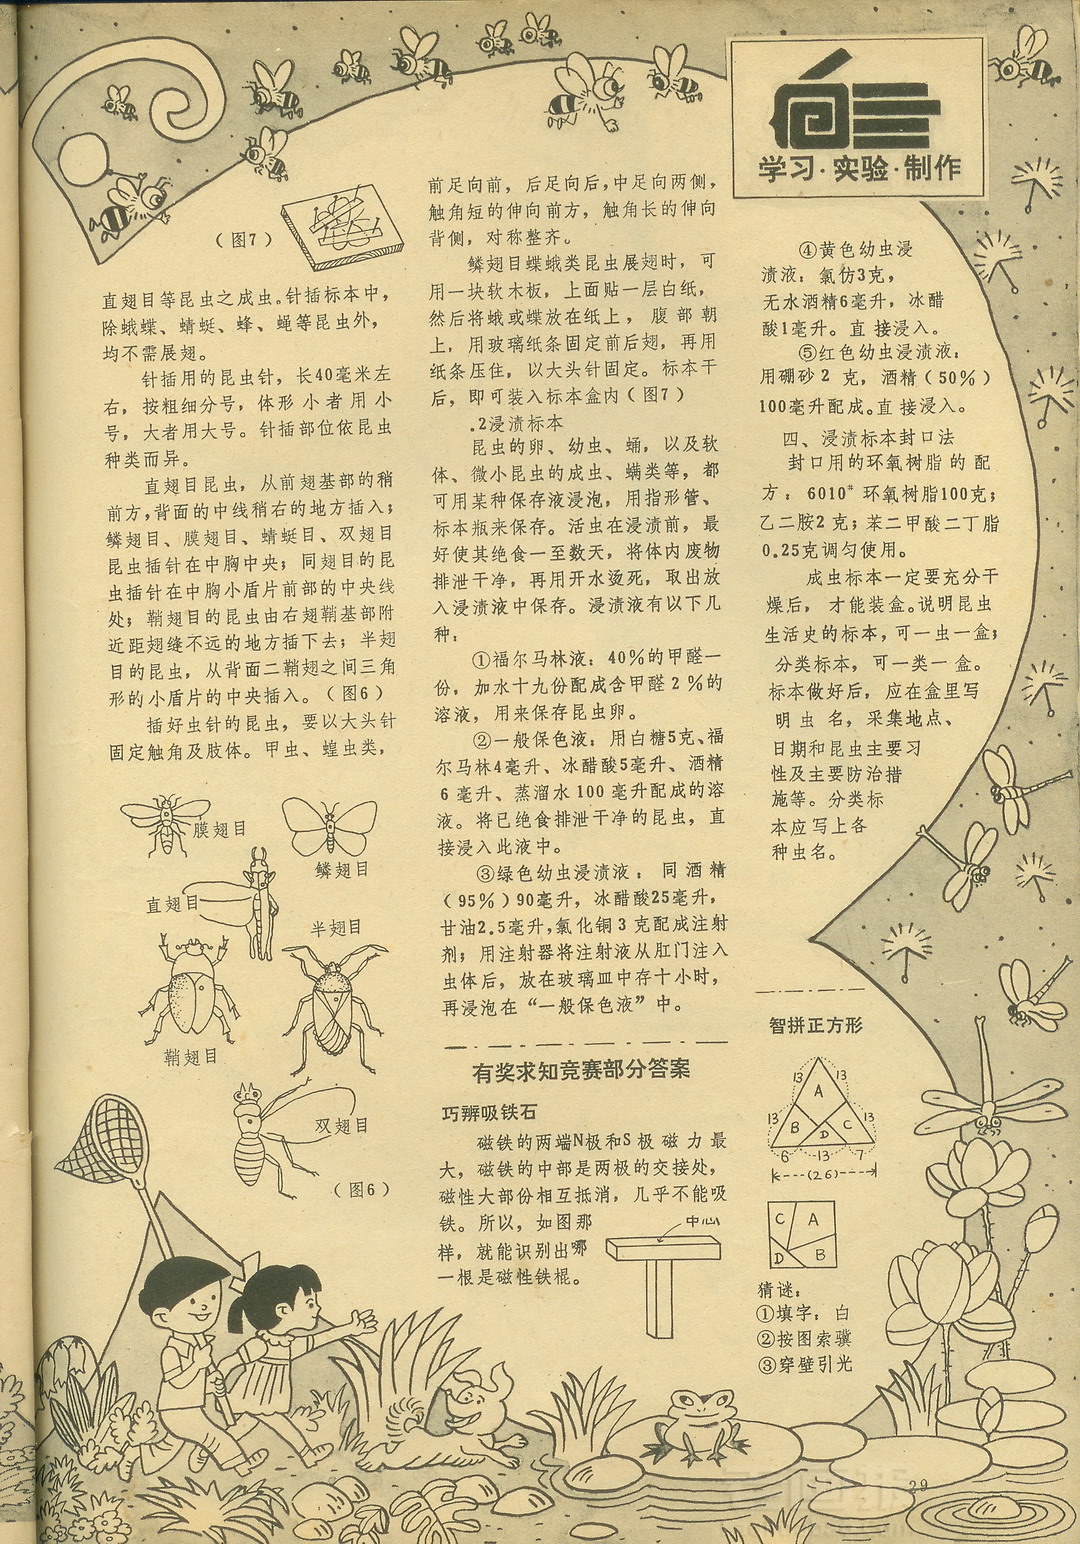 学习·实验·制作
(图7)
直翅目等昆虫之成虫。针插标本中,
除蛾蝶、蜻蜓、蜂、蝇等昆虫外,
均不需展翅。
针插用的昆虫针,长40毫米左
右,按粗细分号,体形小者用小
号,大者用大号。针插部位依昆虫
种类而异。
直翅目昆虫,从前翅基部的稍
前方,背面的中线稍右的地方插入;
鳞翅目、膜翅目、蜻蜓目、双翅目
昆虫插针在中胸中央;同翅目的昆
虫插针在中胸小盾片前部的中央线
处;鞘翅目的昆虫由右翅鞘基部附
近距翅缝不远的地方插下去;半翅
目的昆虫,从背面二鞘翅之间三角
形的小盾片的中央插入。(图6)
插好虫针的昆虫,要以大头针
固定触角及肢体。甲虫、蝗虫类,
膜翅目
鳞翅目
直翅目
半翅目
鞘翅目
双翅目
(图6)
前足向前,后足向后,中足向两侧,
触角短的伸向前方,触角长的伸向
背侧,对称整齐。
鳞翅目蝶蛾类昆虫展翅时,可
用一块软木板,上面贴一层白纸,
然后将蛾或蝶放在纸上,腹部朝
上,用玻璃纸条固定前后翅,再用
纸条压住,以大头针固定。标本干
后,即可装入标本盒内(图7)
.2浸渍标本
昆虫的卵、幼虫、蛹,以及软
体、微小昆虫的成虫、螨类等,都
可用某种保存液浸泡,用指形管、
标本瓶来保存。活虫在浸渍前,最
好使其绝食一至数天,将体内废物
排泄干净,再用开水烫死,取出放
入浸渍液中保存。浸渍液有以下几
种:
①福尔马林液:40%的甲醛一
份,加水十九份配成含甲醛2%的
溶液,用来保存昆虫卵。
②一般保色液:用白糖5克、福
尔马林4毫升、冰醋酸5毫升、酒精
6毫升、蒸溜水100毫升配成的溶
液。将已绝食排泄干净的昆虫,直
接浸入此液中。
③绿色幼虫浸渍液:同酒精
(95%)90毫升,冰醋酸25毫升,
甘油2.5毫升,氯化铜3克配成注射
剂;用注射器将注射液从肛门注入
虫体后,放在玻璃皿中存十小时,
再浸泡在“一般保色液”中。
有奖求知竞赛部分答案
巧辨吸铁石
磁铁的两端N极和S极磁力最
大,磁铁的中部是两极的交接处,
磁性大部份相互抵消,几乎不能吸
铁。所以,如图那
样,就能识别出哪
一根是磁性铁棍。
中心
④黄色幼虫浸
渍液:氯仿3克,
无水酒精6毫升,冰醋
酸1毫升。直接浸入。
⑤红色幼虫浸渍液:
用硼砂2克,酒精(50%)
100毫升配成。直接浸入。
四、浸渍标本封口法
封口用的环氧树脂的配
方:6010#环氧树脂100克;
乙二胺2克;苯二甲酸二丁脂
0.25克调匀使用。
成虫标本一定要充分干
燥后,才能装盒。说明昆虫
生活史的标本,可一虫一盒;
分类标本,可一类一盒。
标本做好后,应在盒里写
明虫名,采集地点、
日期和昆虫主要习
性及主要防治措
施等。分类标
本应写上各
种虫名。
智拼正方形
13 A 13
13 B D C 13
6 13 7
(26)
C A
D B
猜谜:
①填字:白
②按图索骥
③穿壁引光
29